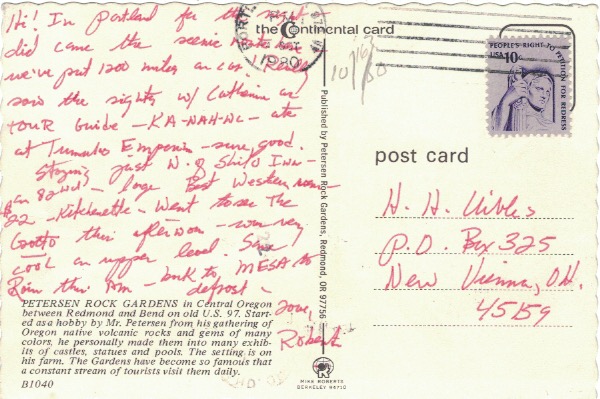 Hi! In Portland for the night
did came the scenic route here
we've put 1200 miles on car! Really
saw the sights w/ Catherine as
tour Guide — KA-NAH-NE — ate
at Tumulus Emporium — sure good.
Staying just N. of Shilo Inn —
on 82nd — large Best Western room —
$22 — Kitchenette — Went to see The
Grotto this afternoon — was very
cool on upper level. Saw
Rain this Am — back to MESA to
defrost —
Love,
Robert
PETERSEN ROCK GARDENS in Central Oregon
between Redmond and Bend on old U.S. 97. Start-
ed as a hobby by Mr. Petersen from his gathering of
Oregon native volcanic rocks and gems of many
colors, he personally made them into many exhib-
its of castles, statues and pools. The setting is on
his farm. The Gardens have become so famous that
a constant stream of tourists visit them daily.
B1040
the Continental card
PM
1980
10/16/80
Published by Petersen Rock Gardens, Redmond, OR 97756
MIKE ROBERTS
BERKELEY 94710
PEOPLE'S RIGHT TO PETITION FOR REDRESS
USA 10c
post card
H. H.
P.O. Box 325
New Vienna, OH.
45159